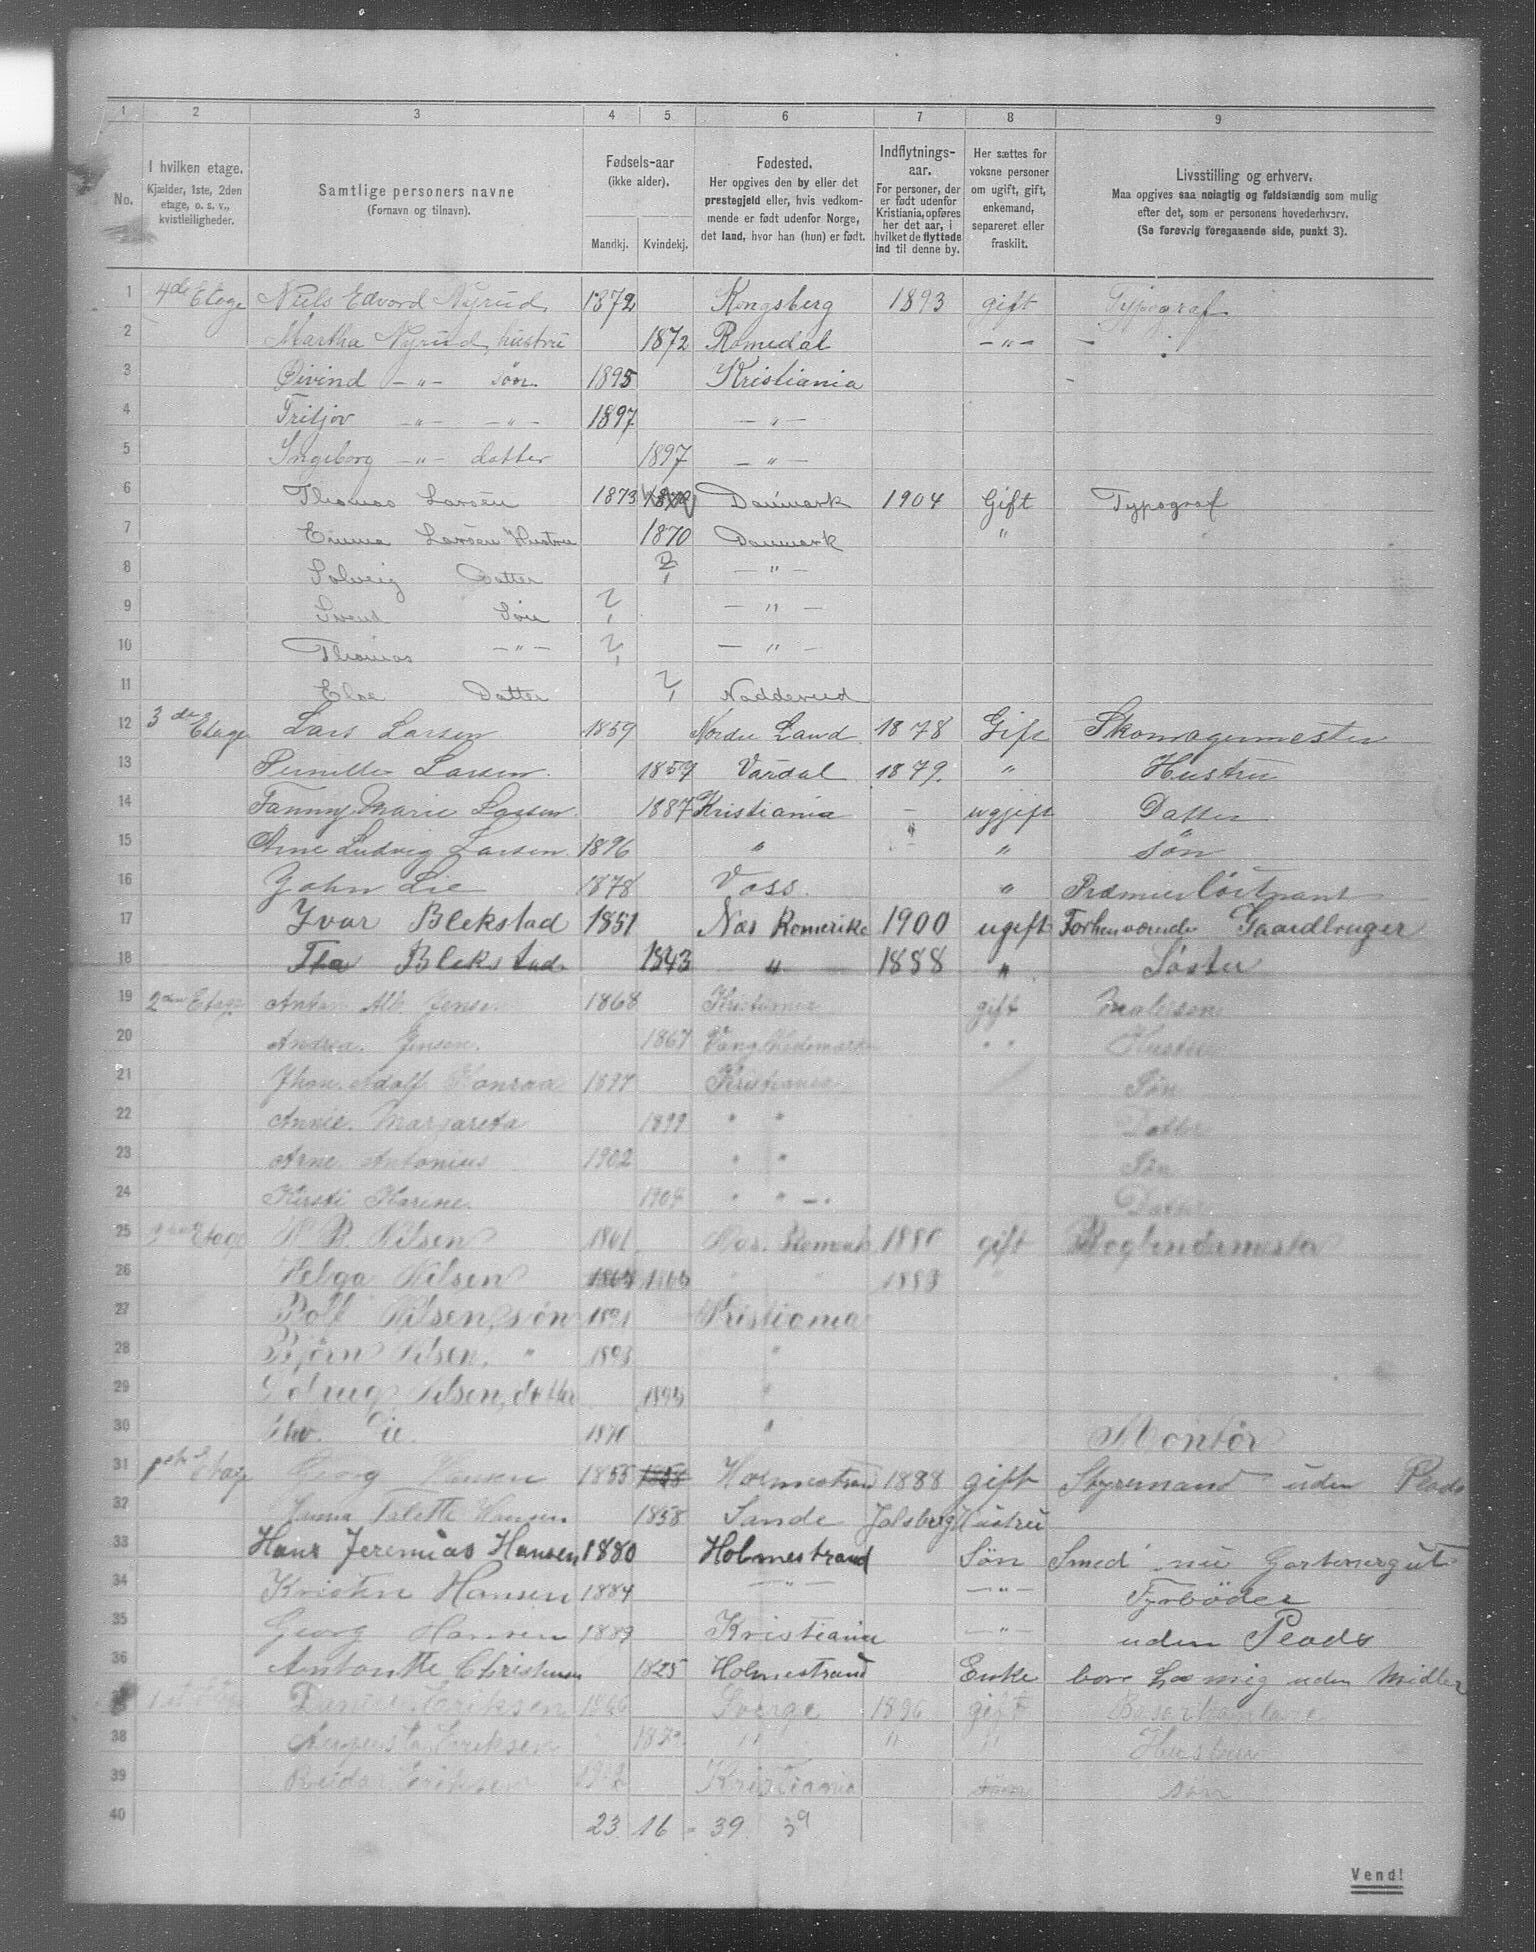 1 2 3 4 5 6 7 8 9
No.
I hvilken etage.
Kjælder, 1ste, 2den
etage, o. s. v.,
kvistleiligheder.
Samtlige personers navne
(Fornavn og tilnavn).
Fødsels-aar
(ikke alder).
Mandkj. Kvindekj.
Fødested.
Her opgives den by eller det
prestegjeld eller, hvis vedkom-
mende er født udenfor Norge,
det land, hvor han (hun) er født.
Indflytnings-
aar.
For personer, der
er født udenfor
Kristiania, opføres
her det aar, i
hvilket de flyttede
ind til denne by.
Her sættes for
voksne personer
om ugift, gift,
enkemand,
separeret eller
fraskilt.
Livsstilling og erhverv.
Maa opgives saa nøiagtig og fuldstændig som mulig
efter det, som er personens hovederhverv.
(Se forøvrig foregaaende side, punkt 3).
1 4de Etage Niels Edvard Nyrud 1872 Kongsberg 1893 gift Typograf
2 Martha Nyrud, hustru 1872 Romedal - " -
3 Øivind - " - søn 1895 Kristiania
4 Fritjov - " - - " - 1897 - " -
5 Ingeborg - " - datter 1897 - " -
6 Thomas Larsen 1873 Danmark 1904 Gift Typograf
7 Emma Larsen Hustru 1870 Danmark "
8 Solveig Datter ? - " -
9 Svend Søn ? - " -
10 Thomas - " - ? - " -
11 Else Datter ? Nadderud
12 3de Etage Lars Larsen 1859 Nordre Land 1878 Gift Skomagermester
13 Pernille Larsen 1857 Vardal 1879. " Hustru
14 Fanny Marie Larsen 1887 Kristiania - ugift Datter
15 Arne Ludvig Larsen 1896 " " " søn
16 John Lie 1878 Voss. " Premierløitnant
17 Ivar Blekstad 1851 Nes Romerike 1900 ugift Forhenværende Gaardbruger
18 Blekstad 1843 " 1888 " Søster
19 2den Etage Anton Alb. Jensen 1868 Kristiania gift
20 Andrea Jensen. 1867 Vang Hedemarken " " Hustru
21 Jhon Adolf Konrad 1897 Kristiania Søn
22 Annie Margareta 1899 " " Datter
23 Arne Antonius 1902 " " Søn
24 Kirsti Karine 1904 " " - " Datter
25 Etage Nilsen 1861 Nes. Romerik 1880 gift
26 Helga Nilsen 1866 " " 1883 "
27 Rolf Nilsen, søn 1891 Kristiania
28 Bjørn Nilsen, " 1893 "
29 Nilsen, datter 1895 "
30 Lie 1870 " Montør
31 1ste Etage Georg Hansen 1855 1858 Holmestrand 1888 gift Styremand uden Plads
32 Hansen 1858 Sande Jalsberg Hustru
33 Hans Jeremias Hansen 1880 Holmestrand Søn Smed nu Gartnergut
34 Kristen Hansen 1884 - " - - " - Fyrbøder
35 Georg Hansen 1889 Kristiania - " - uden Plads
36 Antonette Christensen 1825 Holmestrand Enke hos mig uden Midler
1ste Etage Eriksen 1866 Sverge 1896 gift
38 Augusta Eriksen " " " Hustru
39 Reidar Eriksen Kristiania søn søn
40 23 16 = 39 39
Vend!